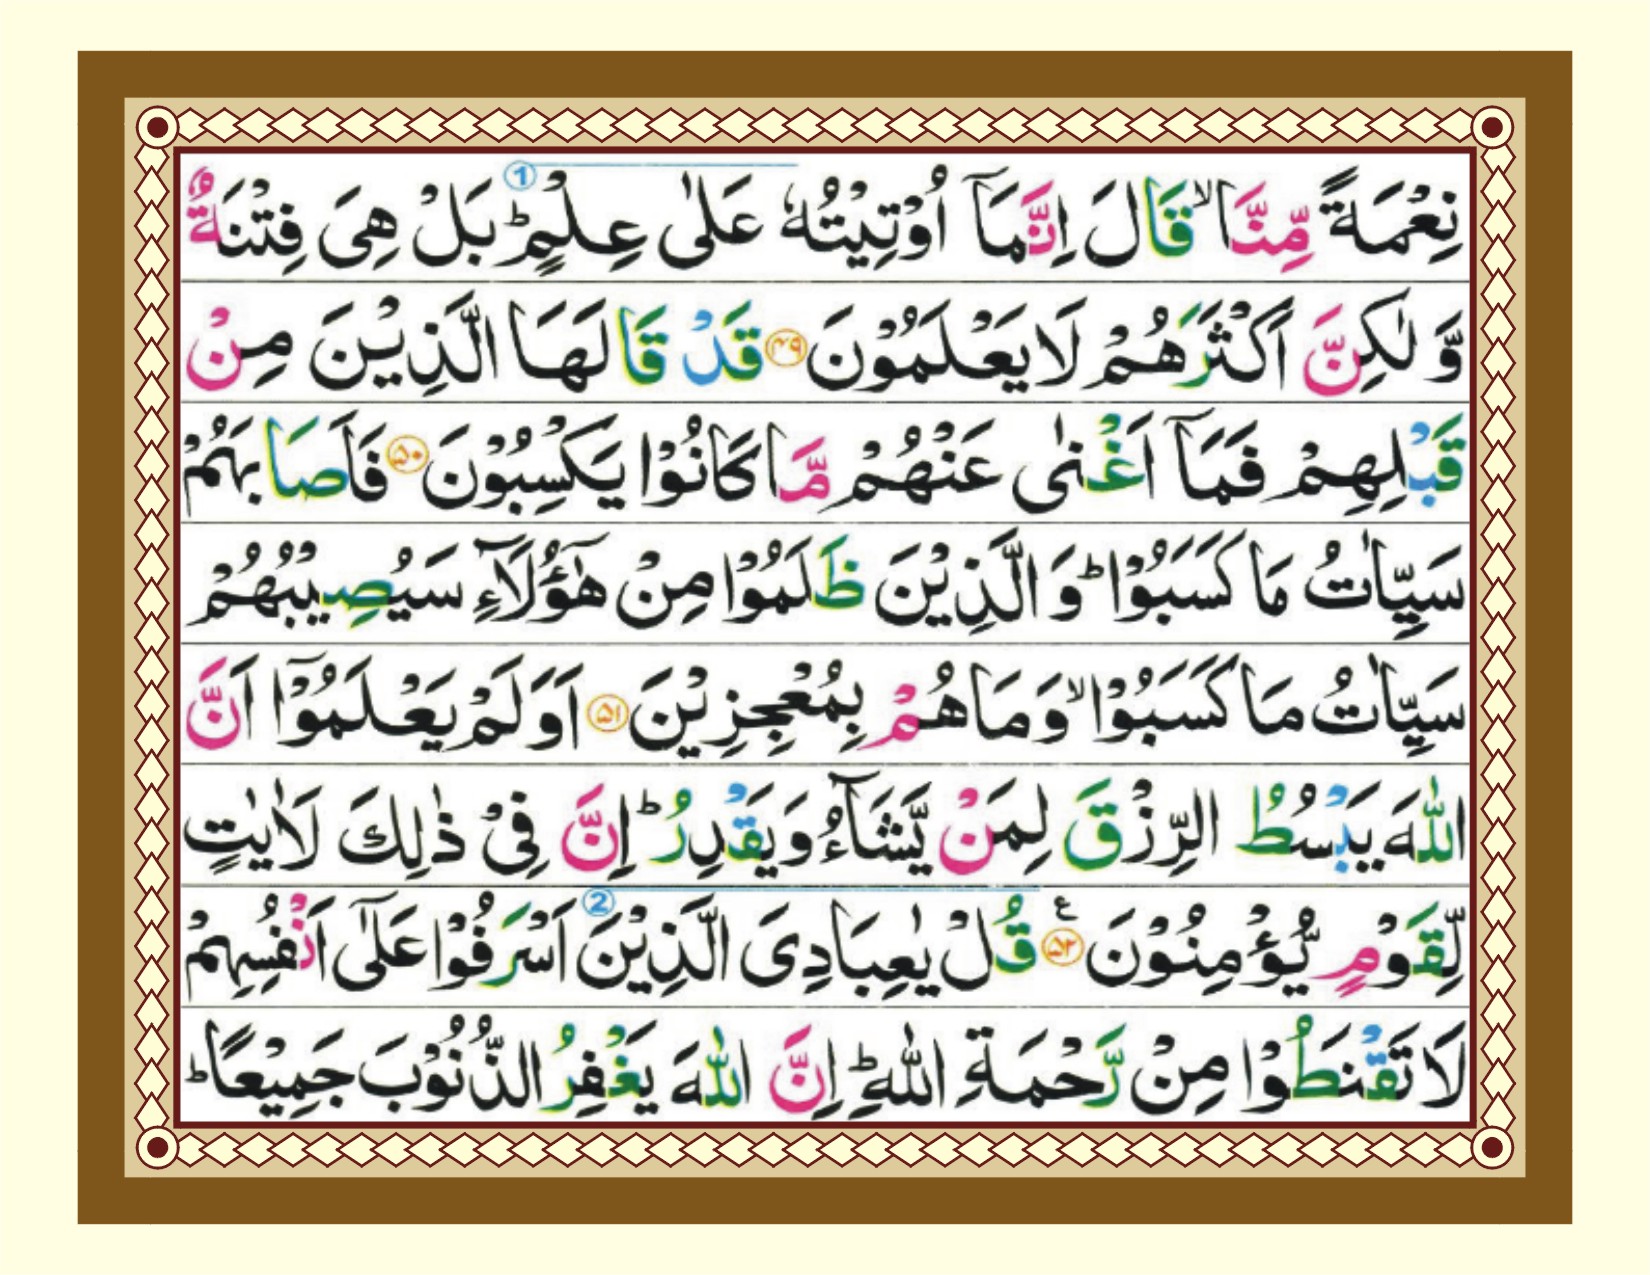 نِعْمَةً مِّنَّا ۙ قَالَ اِنَّمَآ اُوْتِيْتُهٗ عَلٰى عِلْمٍ ؕ ① بَلْ هِىَ فِتْنَةٌ
وَّ لٰكِنَّ اَكْثَرَهُمْ لَا يَعْلَمُوْنَ ﴿۴۹﴾ قَدْ قَالَهَا الَّذِيْنَ مِنْ
قَبْلِهِمْ فَمَآ اَغْنٰى عَنْهُمْ مَّا كَانُوْا يَكْسِبُوْنَ ﴿۵۰﴾ فَاَصَابَهُمْ
سَيِّاٰتُ مَا كَسَبُوْا ؕ وَ الَّذِيْنَ ظَلَمُوْا مِنْ هٰٓؤُلَآءِ سَيُصِيْبُهُمْ
سَيِّاٰتُ مَا كَسَبُوْا ۙ وَمَا هُمْ بِمُعْجِزِيْنَ ﴿۵۱﴾ اَوَلَمْ يَعْلَمُوْٓا اَنَّ
اللّٰهَ يَبْسُطُ الرِّزْقَ لِمَنْ يَّشَآءُ وَيَقْدِرُ ؕ اِنَّ فِىْ ذٰلِكَ لَاٰيٰتٍ
لِّقَوْمٍ يُّؤْمِنُوْنَ ﴿۵۲﴾ ع قُلْ يٰعِبَادِىَ الَّذِيْنَ ② اَسْرَفُوْا عَلٰٓى اَنْفُسِهِمْ
لَا تَقْنَطُوْا مِنْ رَّحْمَةِ اللّٰهِ ؕ اِنَّ اللّٰهَ يَغْفِرُ الذُّنُوْبَ جَمِيْعًا ؕ